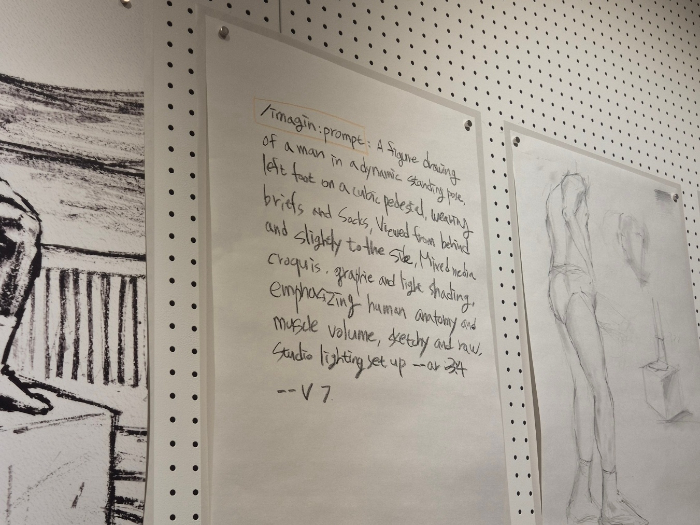 /imagin:prompt: A figure drawing
of a man in a dynamic standing pose,
left foot on a cubic pedestal, wearing
briefs and socks, Viewed from behind
and slightly to the side, Mixed media
croquis, graphie and light shading,
emphasizing human anatomy and
muscle volume, sketchy and raw,
Studio lighting set up --ar 3:4
--V 7